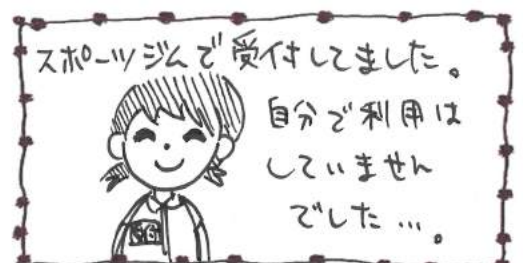 スポーツジムで受付してました。
自分で利用は
していません
でした…。